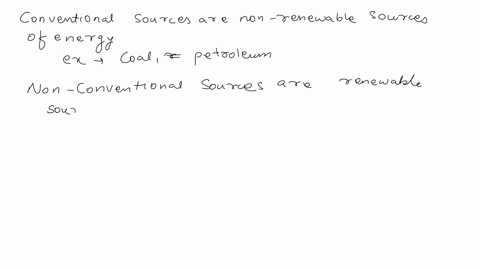 Conventional sources are non-renewable sources
of energy
ex → Coal, petroleum
Non-Conventional sources are renewable
sou